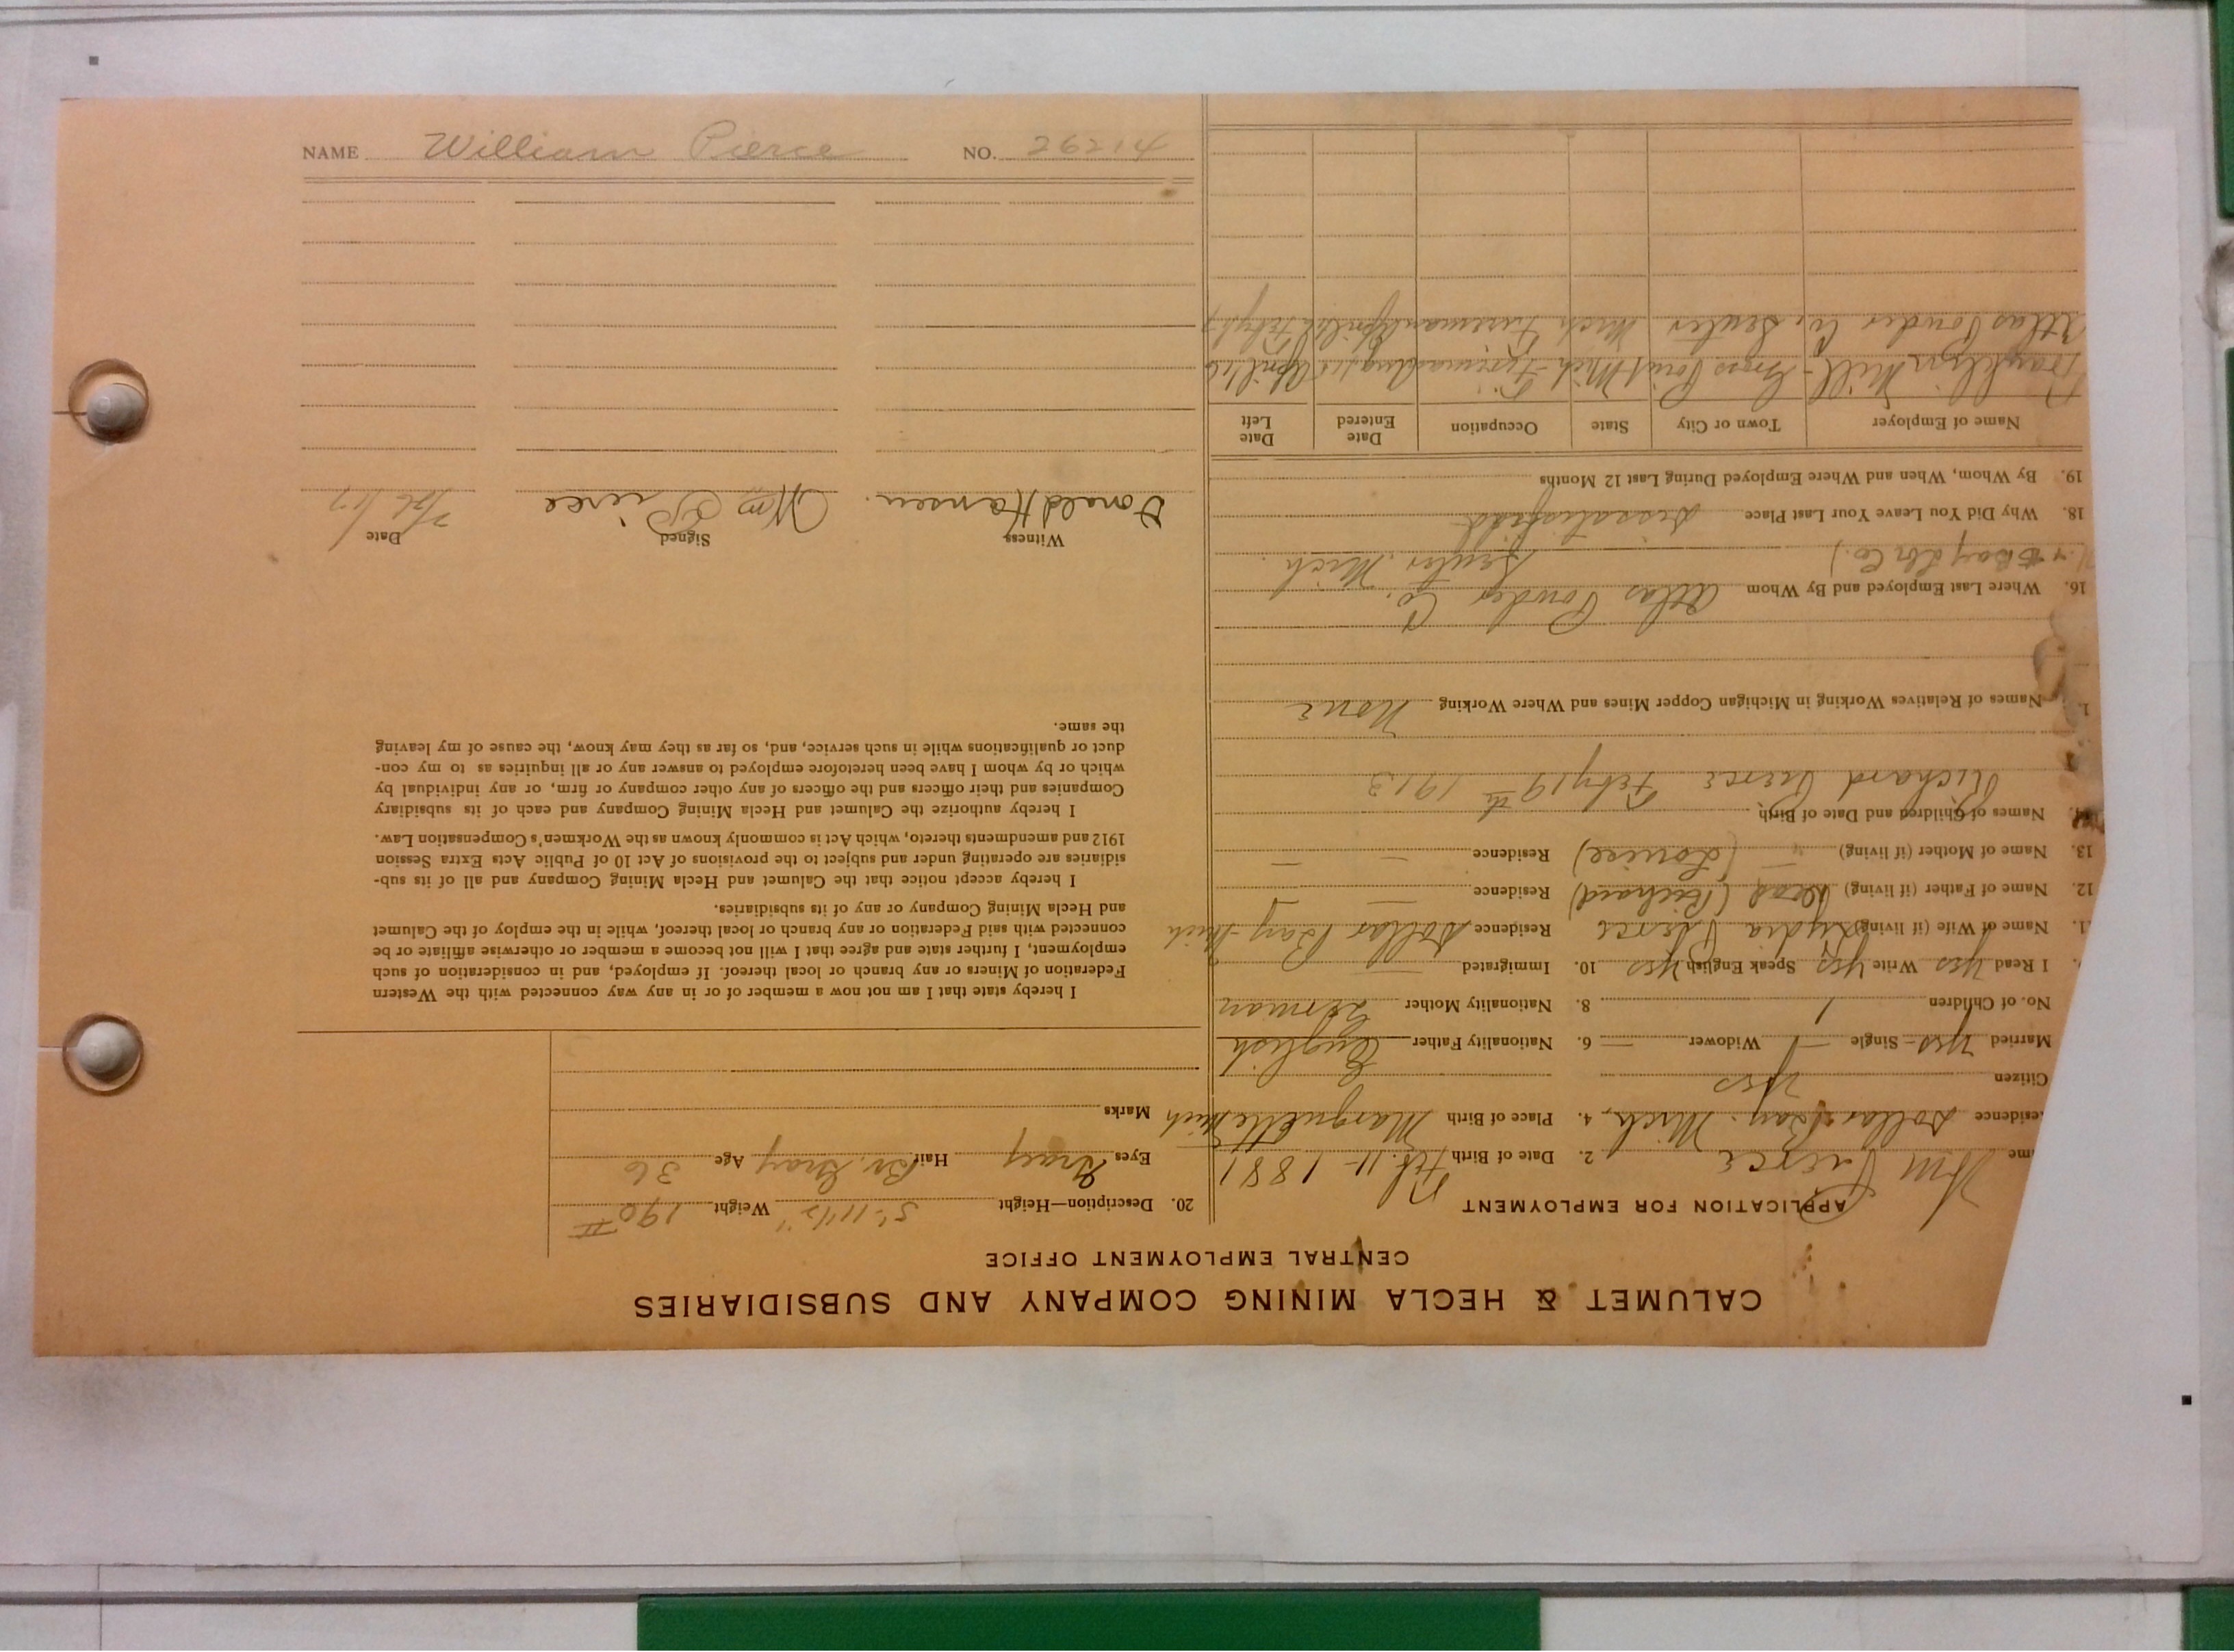 CALUMET & HECLA MINING COMPANY AND SUBSIDIARIES
CENTRAL EMPLOYMENT OFFICE
APPLICATION FOR EMPLOYMENT
me Wm Pierce 2. Date of Birth Feb. 11- 1881
esidence Dollar Bay. Mich, 4. Place of Birth Marquette Mich
Citizen Yes
Married Yes - Single — Widower — 6. Nationality Father English
No. of Children 1 8. Nationality Mother German
I Read Yes Write Yes Speak English Yes 10. Immigrated —
1. Name of Wife (if living) Lydia Pierce Residence Dollar Bay Mich
12. Name of Father (if living) Dead (Richard) Residence — —
13. Name of Mother (if living) " (Louise) Residence — —
14. Names of Children and Date of Birth
Richard Pierce Feby 19th 1913
1 Names of Relatives Working in Michigan Copper Mines and Where Working None
16. Where Last Employed and By Whom Atlas Powder Co.
Bay Co.) Senter. Mich.
18. Why Did You Leave Your Last Place Dissatisfied
19. By Whom, When and Where Employed During Last 12 Months
Name of Employer Town or City State Occupation Date Entered Date Left
Franklin Mill - Gross Point Mich - Fireman Aug 15 April 16
Atlas Powder Co, Senter Mich Fireman April 16 Feby 17
20. Description—Height 5'-11½" Weight 190 #
Eyes Gray Hair Br. Gray Age 36
Marks
I hereby state that I am not now a member of or in any way connected with the Western
Federation of Miners or any branch or local thereof. If employed, and in consideration of such
employment, I further state and agree that I will not become a member or otherwise affiliate or be
connected with said Federation or any branch or local thereof, while in the employ of the Calumet
and Hecla Mining Company or any of its subsidiaries.
I hereby accept notice that the Calumet and Hecla Mining Company and all of its sub-
sidiaries are operating under and subject to the provisions of Act 10 of Public Acts Extra Session
1912 and amendments thereto, which Act is commonly known as the Workmen's Compensation Law.
I hereby authorize the Calumet and Hecla Mining Company and each of its subsidiary
Companies and their officers and the officers of any other company or firm, or any individual by
which or by whom I have been heretofore employed to answer any or all inquiries as to my con-
duct or qualifications while in such service, and, so far as they may know, the cause of my leaving
the same.
Witness Signed Date
Donald Hansen. Wm Pierce 2/26/17
NAME William Pierce NO. 26214